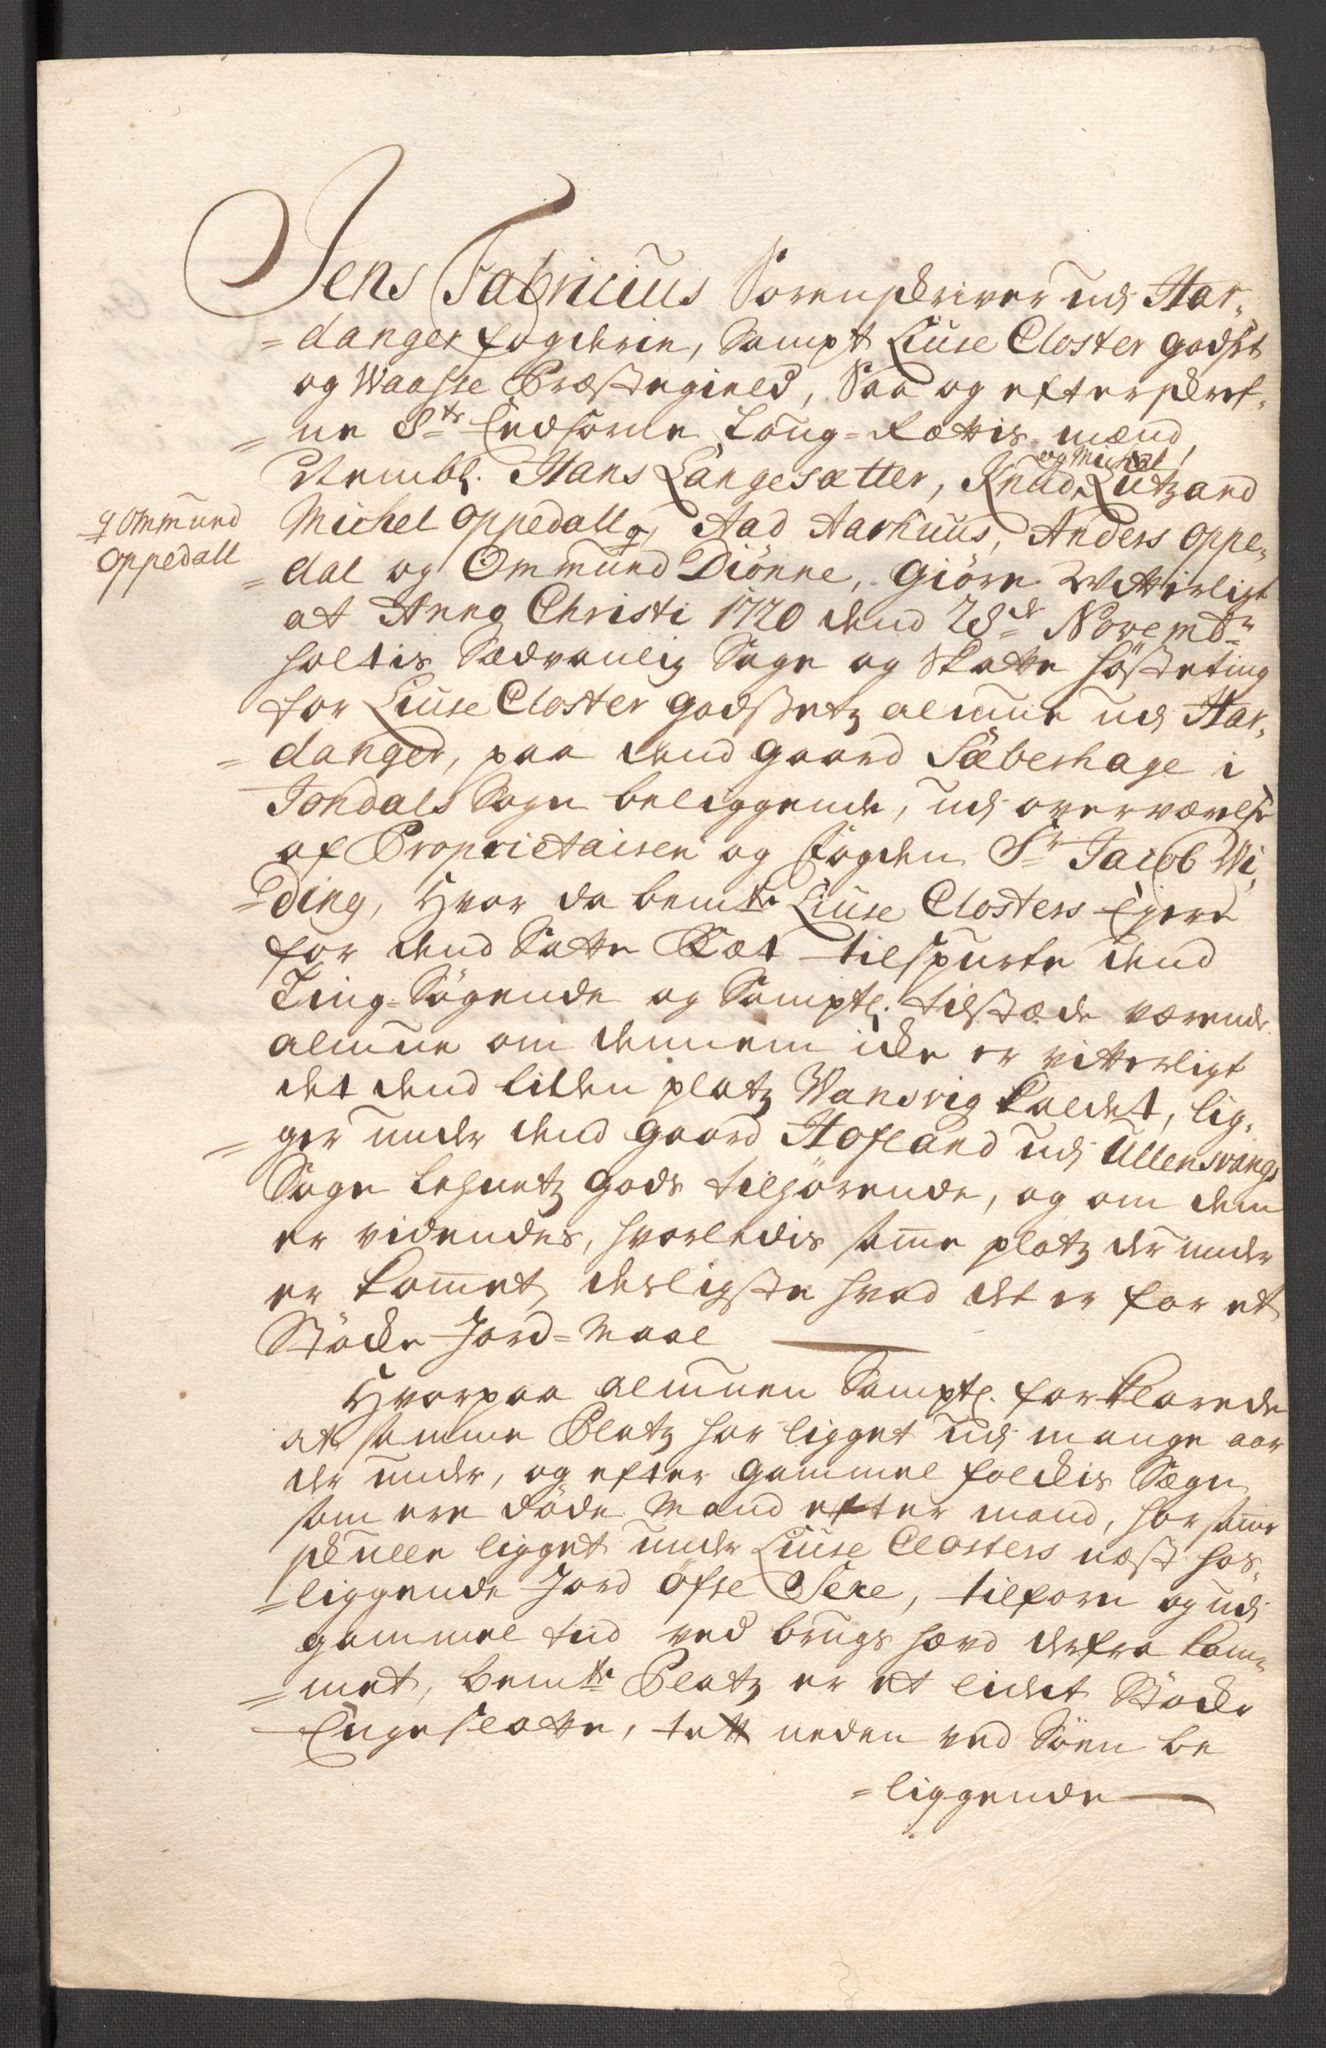 Jens Fabricius Sorenskriver udj Har-
=danger fogderie, Sampt Liuse Closter godset
og Waasse Præstegield, Saa og efterskref-
=ne Sts Eedsorne Laug-Rættis-mænd,
Nembl. Hans Langesætter, Knud og Michel Lutzand
Michel Oppedall, Aad Aarhuus, Anders Oppe-
q Ommund
Oppedall
=dal og Ommund Diönne, Giöre Witterligt
at Anno Christi 1720 dend 28de Novembr
holtis Sædvanlig Sage og Skatte höste ting
for Liuse Closter godssetz almue udj Har-
=danger, paa dend gaard Sæberhage i
Jondals Sogn beliggende, udj overværelse
af Proprietairen og fogden Sr Jacob Wi-
=ding, Hvor da bemte Liuse Closters Ejere
for dend Satte Ræt tilspurte dend
Ting-Sögende og Samptl. tilstæde værende
almue om dennem icke er vitterligt
det dend liden platz Wansvig kaldet, lig-
=ger under dend gaard Hofland udj Ullensvangs
Sogn Lehnetz gods tilhörende, og om dem
er videndes, hvorledis samme platz der under
er kommet, desligste hvad det er for et
Stöcke Jord=Maal
Hvorpaa almuen Samptl. forklarede
at samme Platz har ligget udj mange aar
der under, og efter gammel folckis Sagn
som ere döde Mand efter mand, har samme
skulle ligget under Liuse Closters næst hos-
=liggende Jord öfre Sexe, tilforn og udj
gammel tid ved brugs hævd derfra kom-
=met, bemte Platz er et lidet Stöcke
Engeslotte, tett neden ved Söen be
=liggende